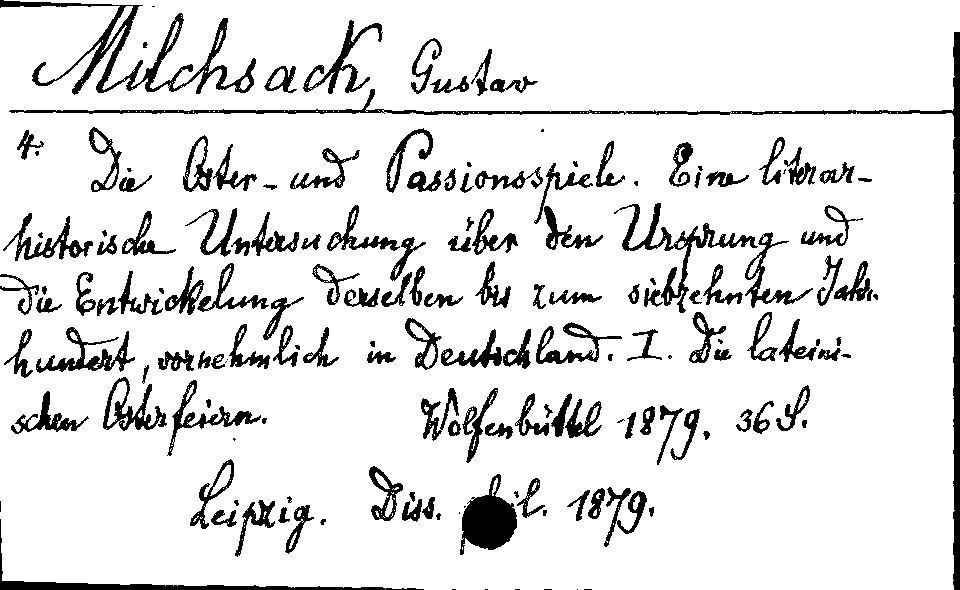 Milchsack, Gustav
4.
Die Oster- und Passionsspiele. Eine literar-
historische Untersuchung über den Ursprung und
die Entwickelung derselben bis zum siebzehnten Jahr-
hundert, vornehmlich in Deutschland. I. Die lateini-
schen Osterfeiern. Wolfenbüttel 1879. 36 S.
Leipzig. Diss. 1879.